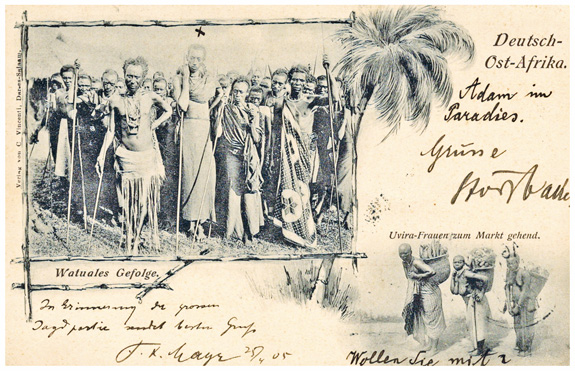 Deutsch-
Ost-Afrika.
Adam im
Paradies.
Grüsse
Verlag von C. Vincenti, Dar-es-Salaam.
Uvira-Frauen zum Markt gehend.
Watuales Gefolge.
In Erinnerung der grossen
Jagdpartie sendet besten Gruß
05
Wollen Sie mit?